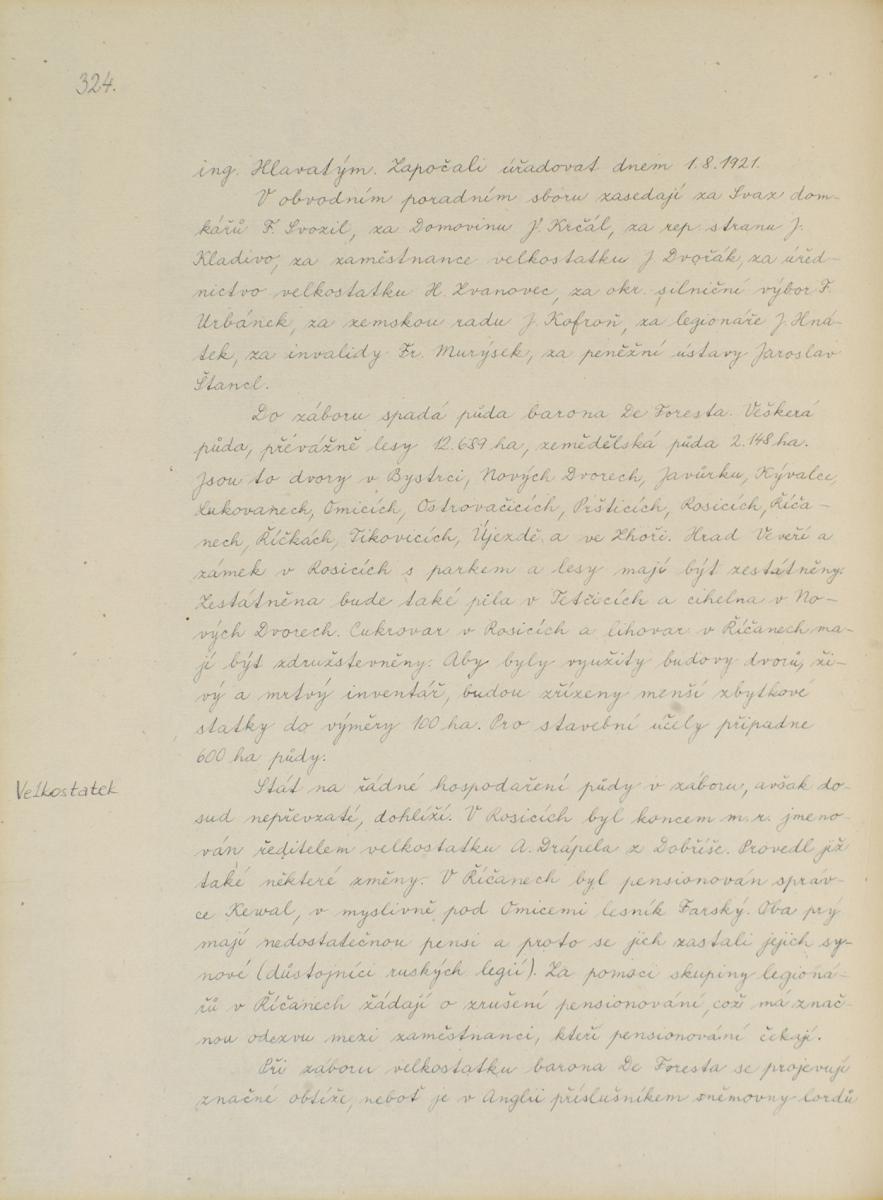 324.
ing. Hlavatým. Započali úřadovat dnem 1.8.1921.
V obvodním poradním sboru zasedají za Svaz dom-
kářů F. Svozil, za Domovinu J. Krčál, za rep. stranu J.
Kladivo, za zaměstnance velkostatku J. Dvořák, za úřed-
nictvo velkostatku H. Zvanovec, za okr. silniční výbor F.
Urbánek, za zemskou radu J. Kofroň, za legionáře J. Hná-
tek, za invalidy Fr. Murýsek, za peněžní ústavy Jaroslav
Štancl.
Do záboru spadá půda barona De Foresta. Veškerá
půda, převážně lesy 12.689 ha, zemědělská půda 2.148 ha.
Jsou to dvory v Bystrci, Nových Dvorech, Javůrku, Kývalce,
Lukovanech, Omicích, Ostrovačicích, Prštících, Rosicích, Říča-
nech, Říčkách, Tikovicích, Újezdě a ve Zhoři. Hrad Veveří a
zámek v Rosicích s parkem a lesy mají být zestátněny.
Zestátněna bude také pila v Tetčicích a cihelna v No-
vých Dvorech. Cukrovar v Rosicích a lihovar v Říčanech ma-
jí být združstevněny. Aby byly využity budovy dvorů, ži-
vý a mrtvý inventář, budou zřízeny menší zbytkové
statky do výměry 100 ha. Pro stavební účely připadne
600 ha půdy.
Velkostatek
Stát na řádné hospodaření půdy v záboru, avšak do-
sud nepřevzaté, dohlíží. V Rosicích byl koncem m.r. jmeno-
ván ředitelem velkostatku A. Drápela z Dobříše. Provedl již
také některé změny. V Říčanech byl pensionován správ-
ce Kewal, v myslivně pod Omicemi lesník Farský. Oba prý
mají nedostatečnou pensi a proto se jich zastali jejich sy-
nové (důstojníci ruských legií). Za pomoci skupiny legioná-
řů v Říčanech žádají o zrušení pensionování, což má znač-
nou odezvu mezi zaměstnanci, kteří pensionování čekají.
Při záboru velkostatku barona De Foresta se projevují
značné obtíže, neboť je v Anglii příslušníkem sněmovny lordů